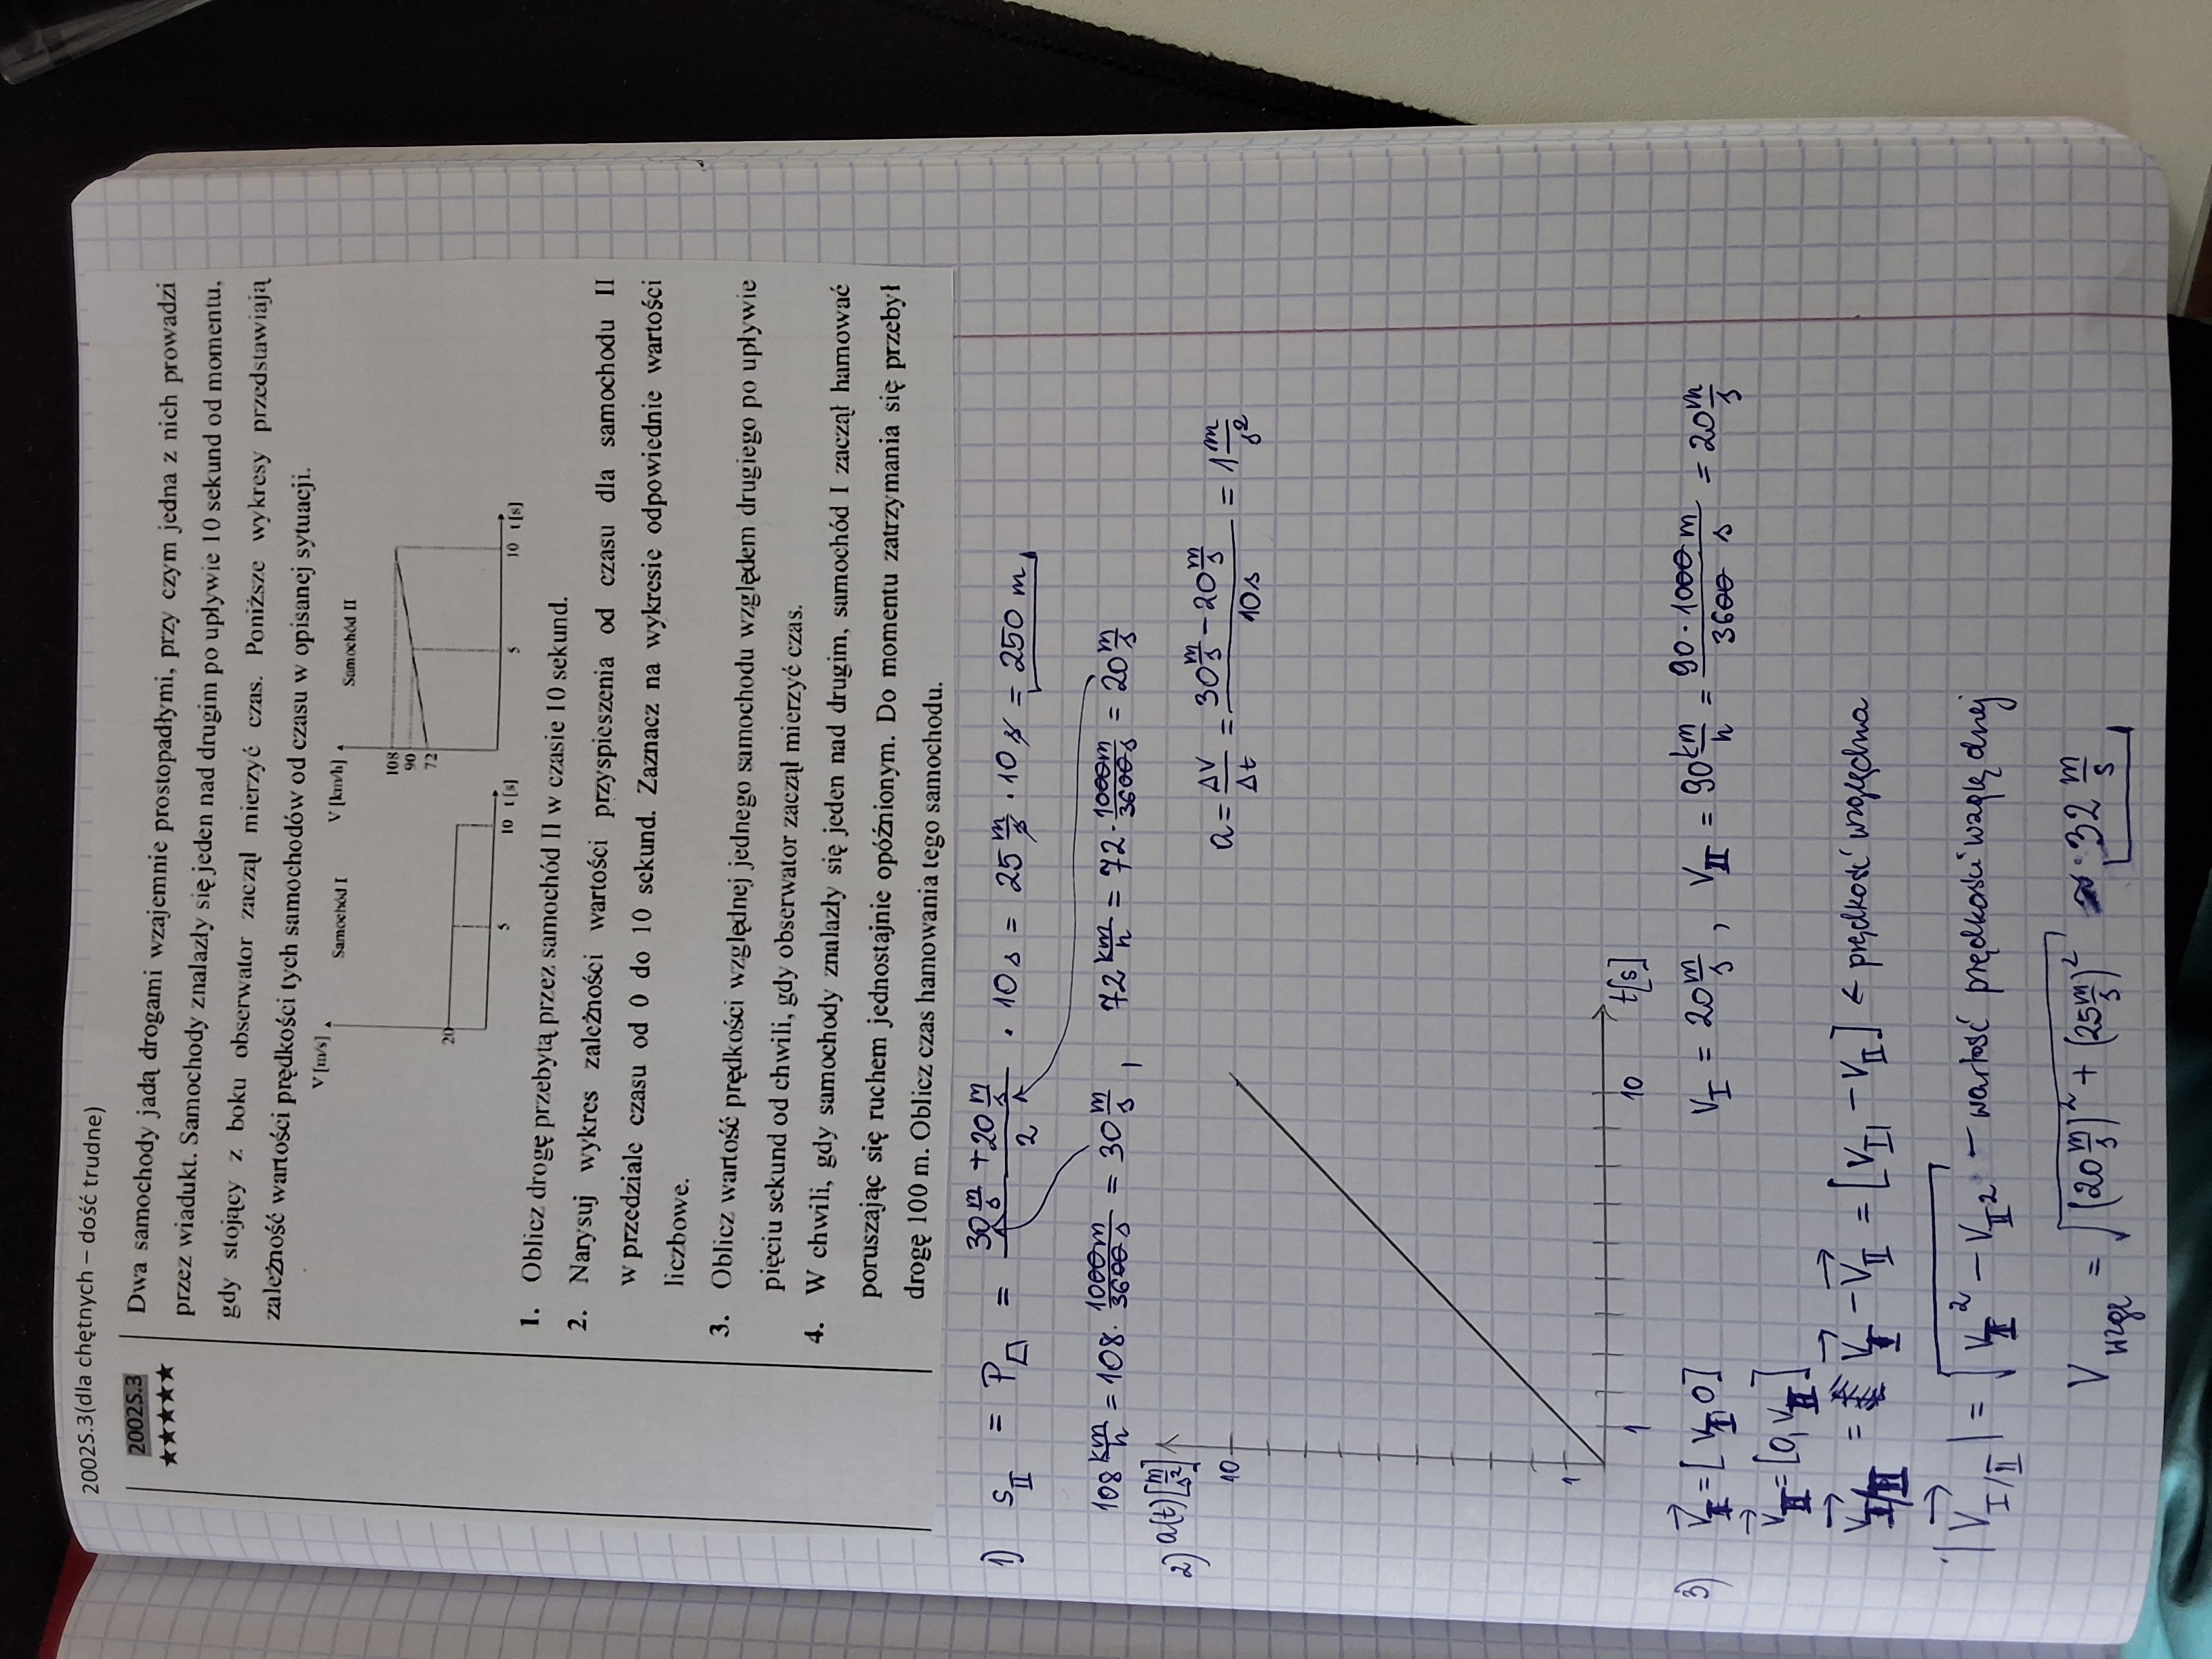 2002S.3(dla chętnych – dość trudne)
2002S.3
★★★★★★
Dwa samochody jadą drogami wzajemnie prostopadłymi, przy czym jedna z nich prowadzi
przez wiadukt. Samochody znalazły się jeden nad drugim po upływie 10 sekund od momentu,
gdy stojący z boku obserwator zaczął mierzyć czas. Poniższe wykresy przedstawiają
zależność wartości prędkości tych samochodów od czasu w opisanej sytuacji.
Samochód I
V [m/s]
20
5
10
t [s]
Samochód II
V [km/h]
108
90
72
5
10
t [s]
1. Oblicz drogę przebytą przez samochód II w czasie 10 sekund.
2. Narysuj wykres zależności wartości przyspieszenia od czasu dla samochodu II
w przedziale czasu od 0 do 10 sekund. Zaznacz na wykresie odpowiednie wartości
liczbowe.
3. Oblicz wartość prędkości względnej jednego samochodu względem drugiego po upływie
pięciu sekund od chwili, gdy obserwator zaczął mierzyć czas.
4. W chwili, gdy samochody znalazły się jeden nad drugim, samochód I zaczął hamować
poruszając się ruchem jednostajnie opóźnionym. Do momentu zatrzymania się przebył
drogę 100 m. Oblicz czas hamowania tego samochodu.
1) s_II = P = (30 m/s + 20 m/s)/2 · 10 s = 25 m/s · 10 s = 250 m
108 km/h = 108 · 1000m/3600s = 30 m/s , 72 km/h = 72 · 1000m/3600s = 20 m/s
2) a(t) [m/s²]
a = Δv/Δt = (30 m/s − 20 m/s)/10s = 1 m/s²
10
1
1
10
t[s]
3) V_I = [V_I, 0] V_I = 20 m/s , V_II = 90 km/h = 90 · 1000 m/3600 s = 20 m/s
V_II = [0, V_II]
V_I/II = V_I − V_II = [V_I, − V_II] < prędkość względna
|V_I/II| = √(V_I² − V_II²) − wartość prędkości względnej
V wzgl = √((20 m/s)² + (25 m/s)²) ≈ 32 m/s